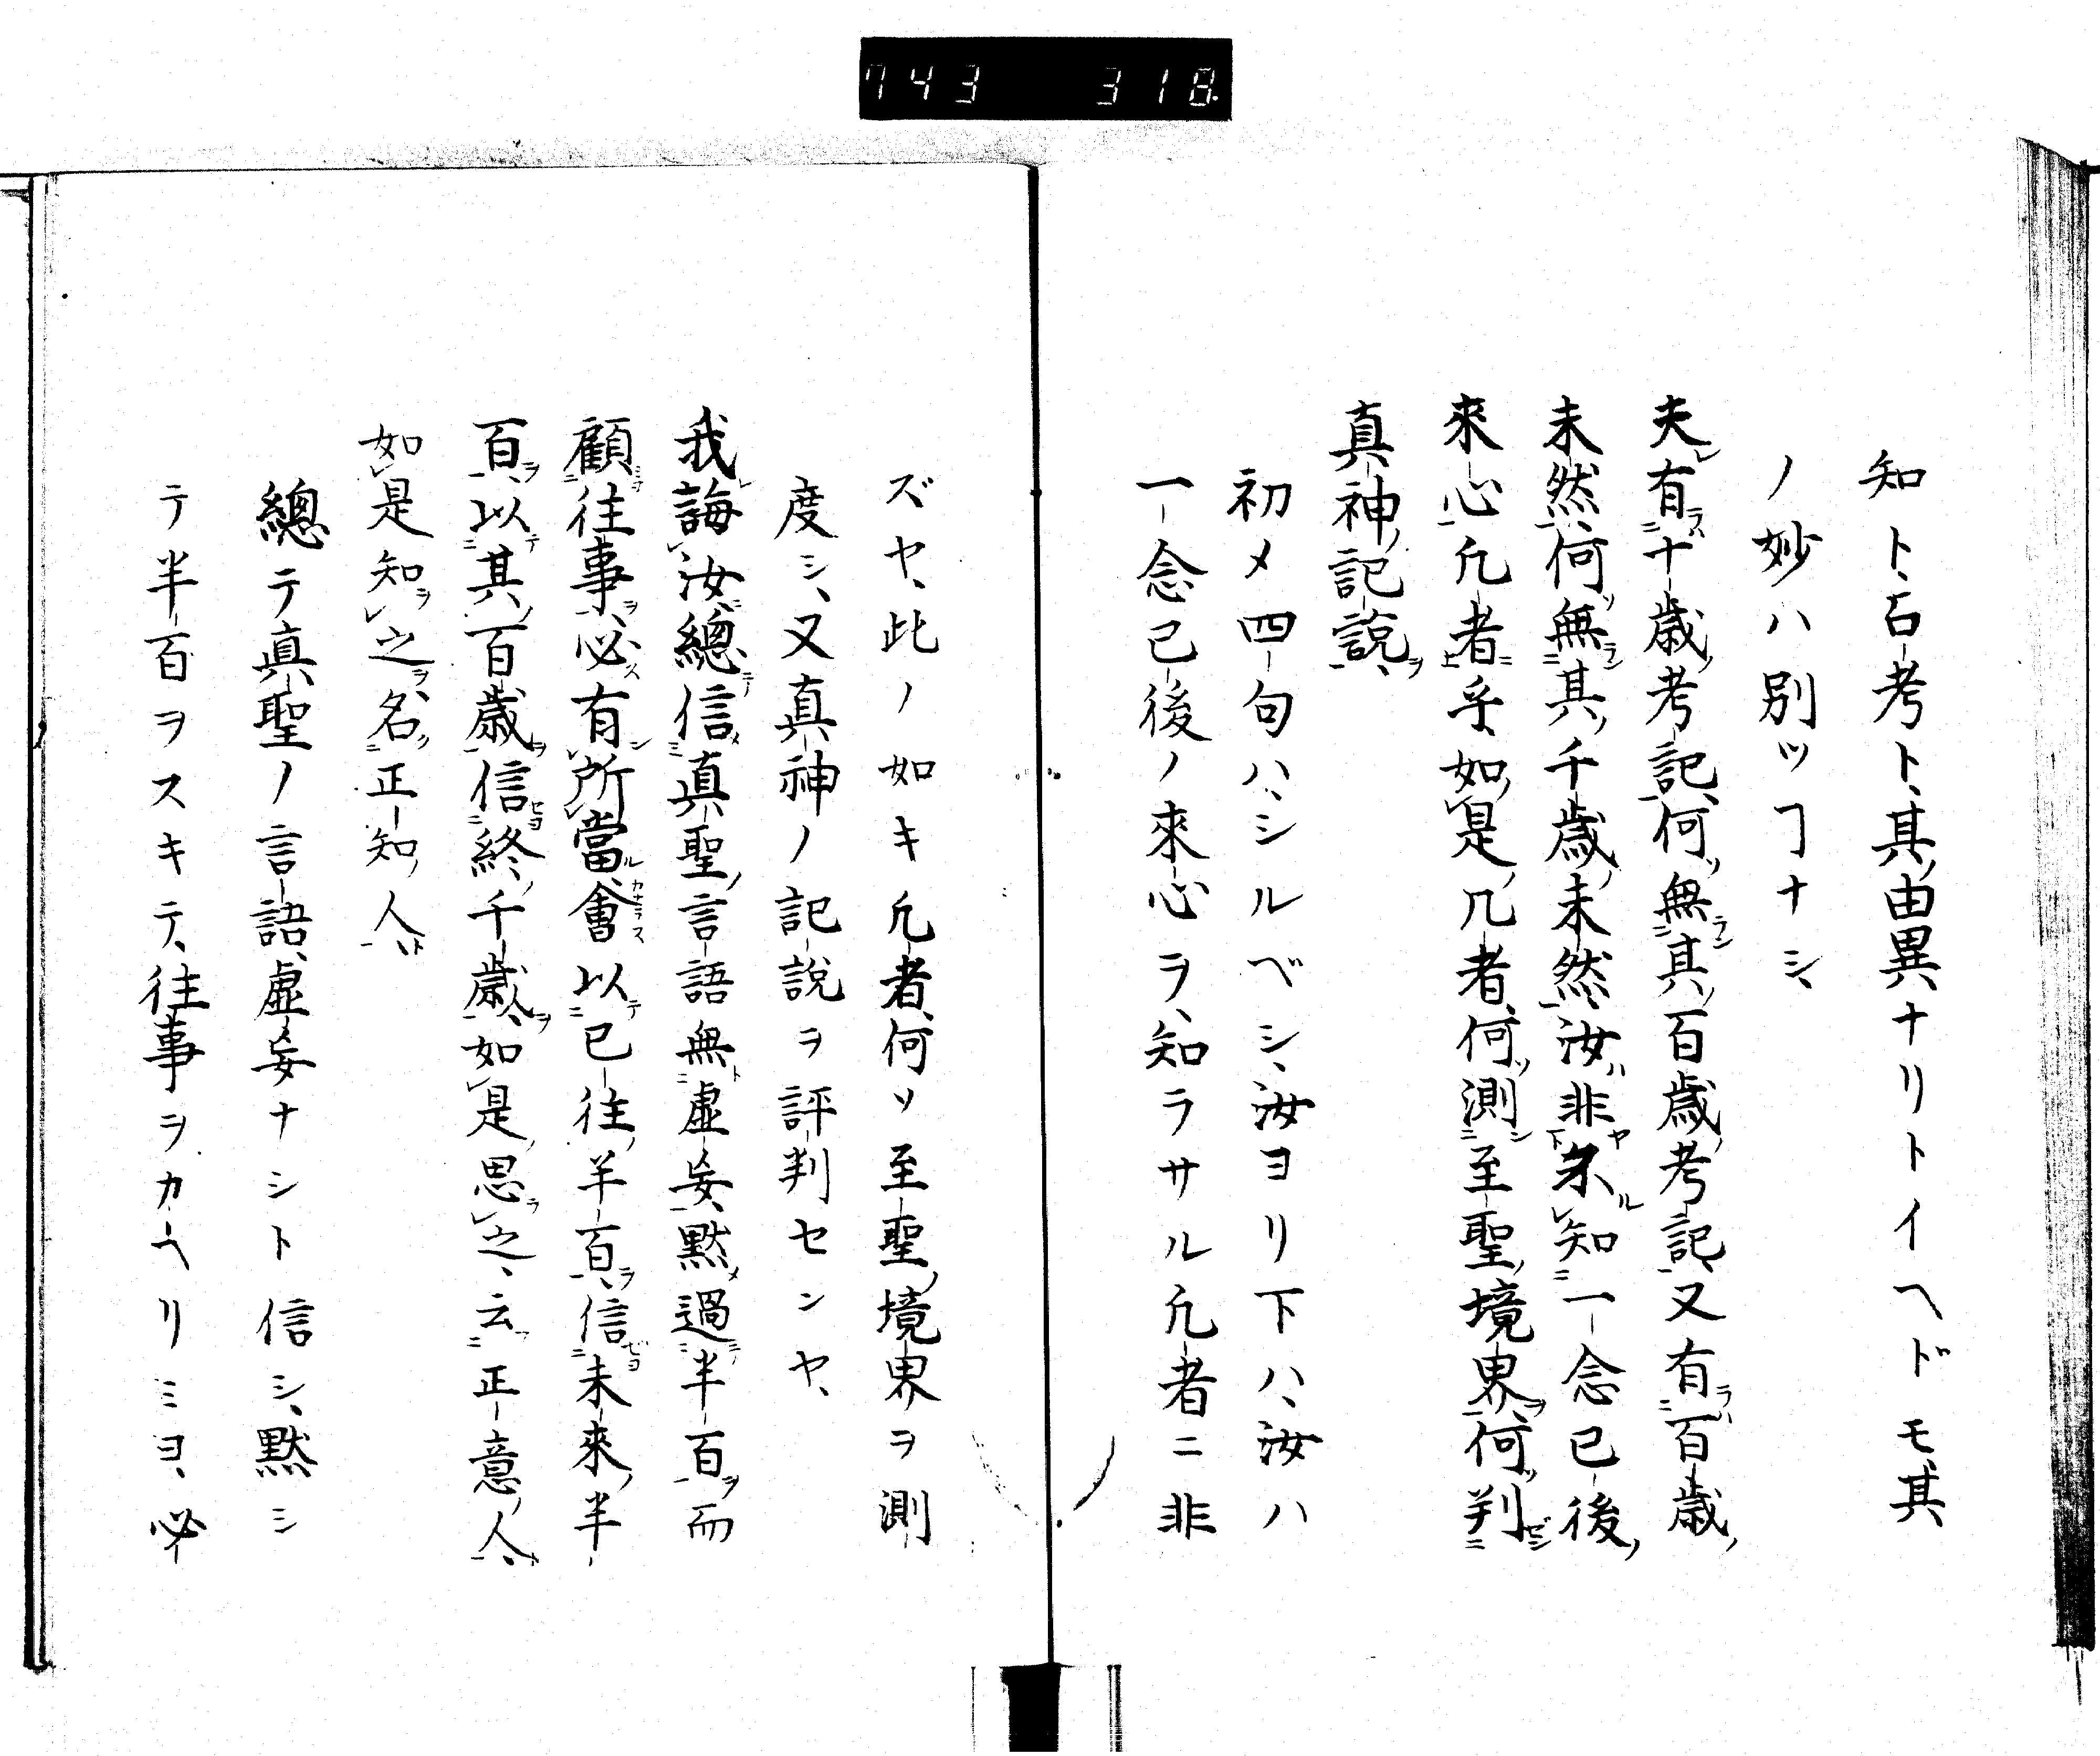 743 318.
知ト、占考ト、其由異ナリトイヘドモ、其
ノ妙ハ別ツヿナシ、
夫有十歳考記、何無其百歳考記、又有百歳
未然、何無其千歳未然、汝非不知一念已後
來心凢者乎、如是凢者、何測至聖境界、何判
真神記說、
初メ四句ハ、シルベシ、汝ヨリ下ハ、汝ハ
一念已後ノ來心ヲ、知ラサル凢者ニ非
ズヤ、此ノ如キ凢者、何ソ至聖境界ヲ測
度シ、又真神ノ記說ヲ評判センヤ、
我誨汝、總信真聖言語無虛妄、黙過半百而
顧往事、必有所當會以已往半百、信未來半
百、以其百歳信終千歳、如是思之、云正意人、
如是知之、名正知人、
總テ真聖ノ言語、虛妄ナシト信シ、黙シ
テ半百ヲスキテ、往事ヲカヘリミヨ、必